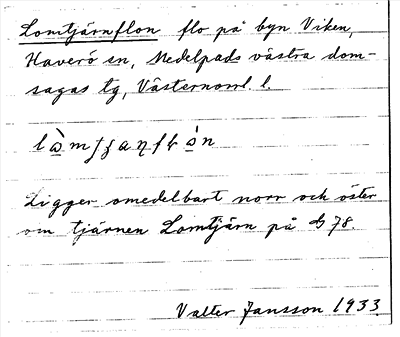 Lomtjärnflon flo på byn Viken,
Haverö sn, Medelpads västra dom-
sagas tg, Västernorrl. l.
Ligger omedelbart norr och öster
om tjärnen Lomtjärn på G 78.
Valter Jansson 1933